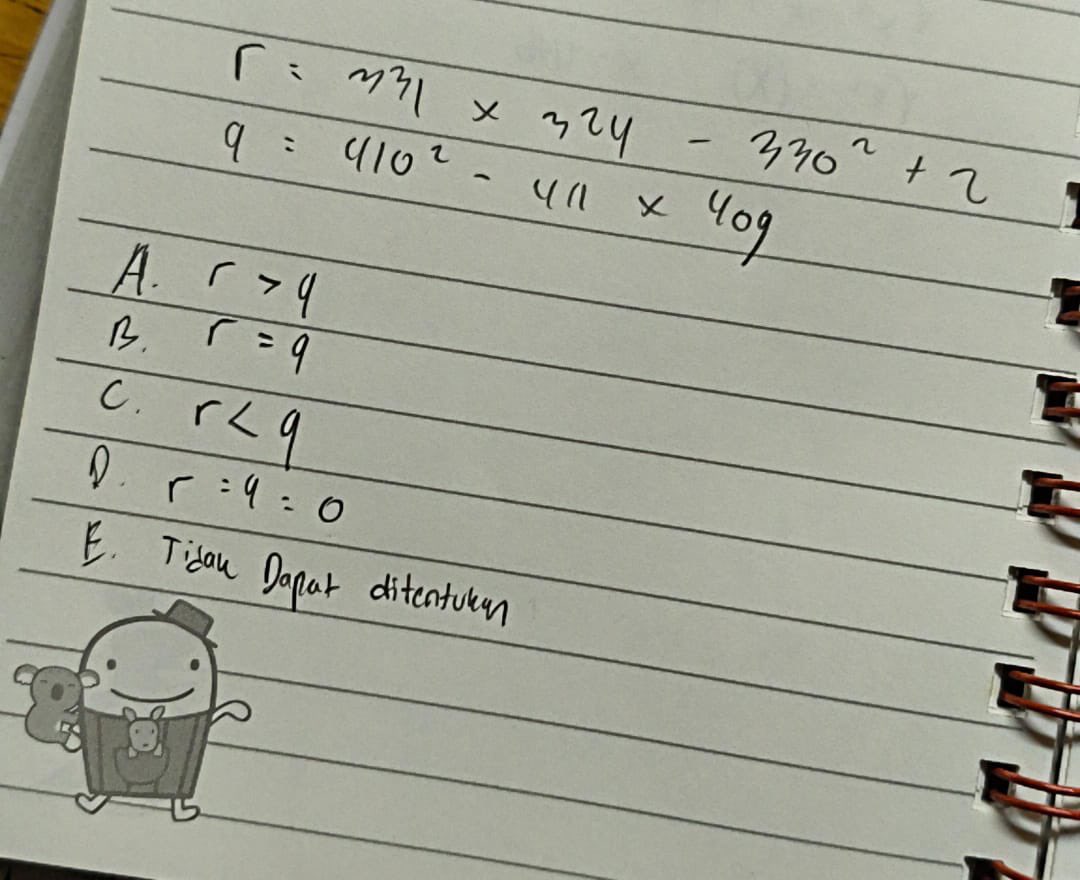 r = 331 x 324 - 330² + 2
q = 410² - 411 x 409
A. r > q
B. r = q
C. r < q
D. r = q = 0
E. Tidak Dapat ditentukan